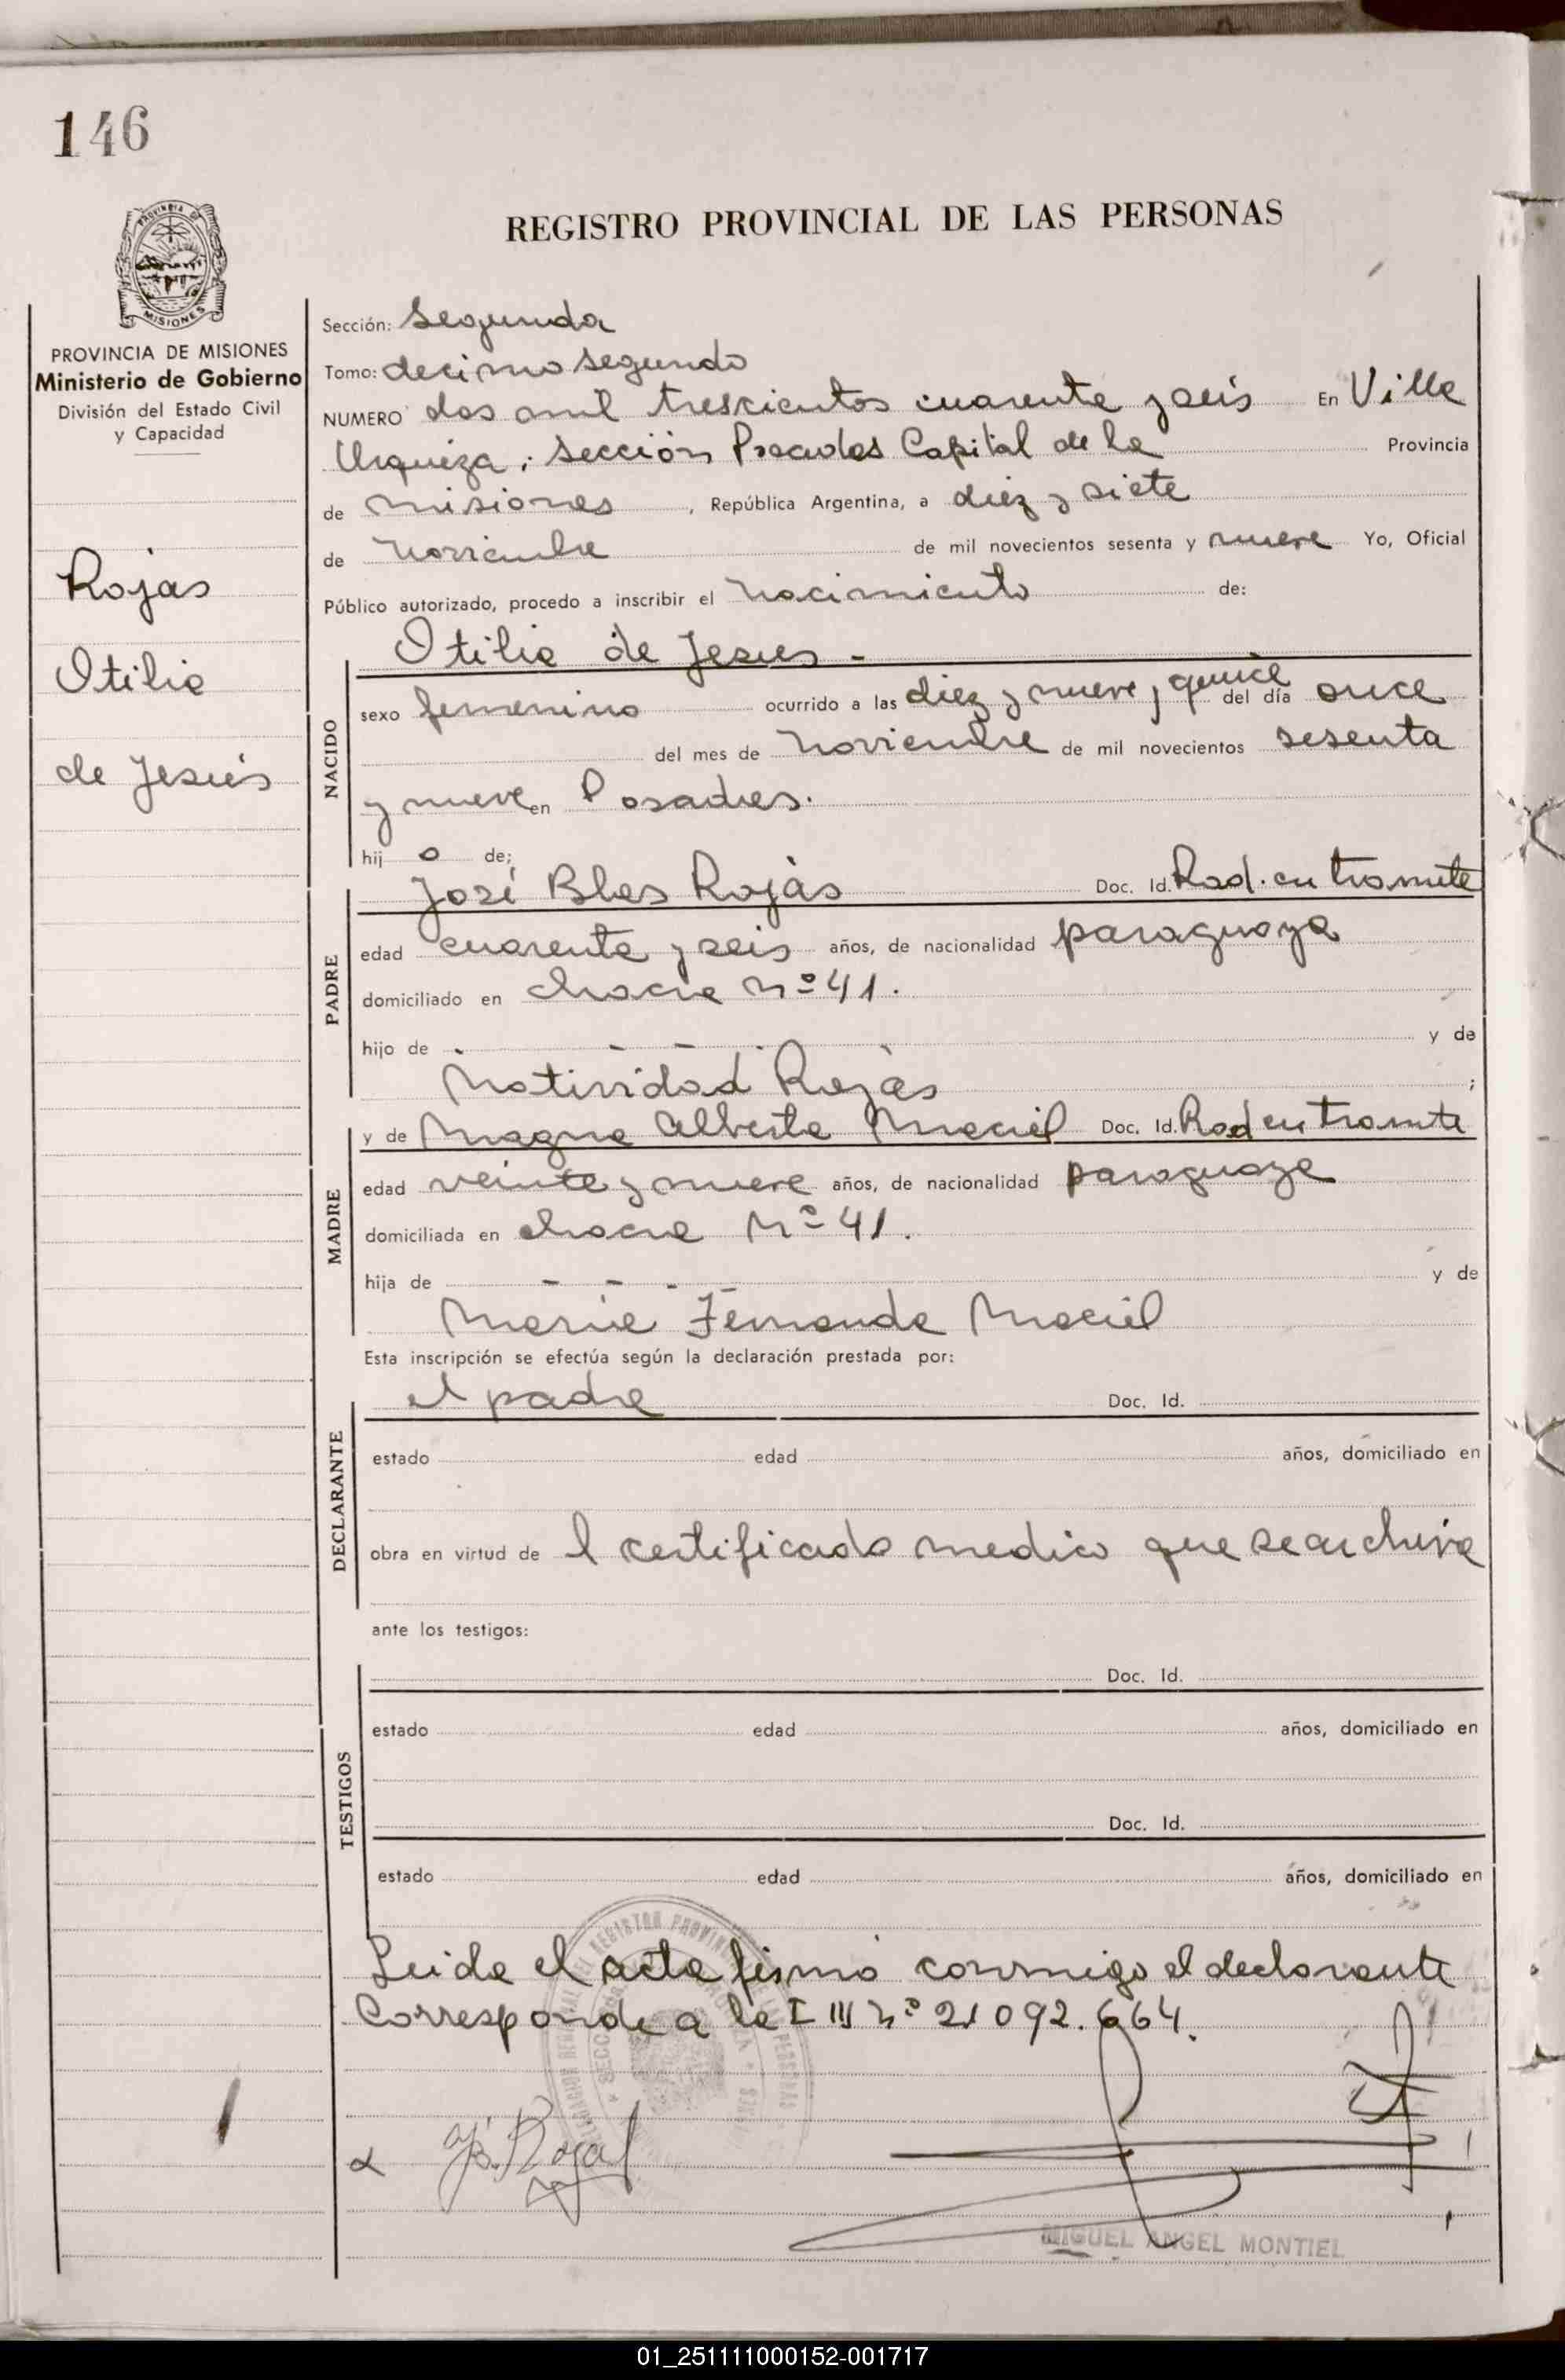 146
REGISTRO PROVINCIAL DE LAS PERSONAS
MISIONES
PROVINCIA DE MISIONES
Ministerio de Gobierno
División del Estado Civil
y Capacidad
Rojas
Otilia
de Jesús
Sección: Segunda
Tomo: decimo segundo
NUMERO dos mil trescientos cuarenta y seis En Villa
Urquiza, Sección Posadas Capital de la Provincia
de Misiones, República Argentina, a diez y siete
de noviembre de mil novecientos sesenta y nueve Yo, Oficial
Público autorizado, procedo a inscribir el nacimiento de:
Otilia de Jesus -
NACIDO
sexo femenino ocurrido a las diez y nueve y quince del día once
del mes de noviembre de mil novecientos sesenta
y nueve en Posadas.
hij o de;
PADRE
José Blas Rojas Doc. Id. Rad. en tramite
edad cuarenta y seis años, de nacionalidad paraguaya
domiciliado en chacra Nº 41.
hijo de - - - y de
Natividad Rojas ;
MADRE
y de Magna Alberta Maciel Doc. Id. Rad en tramite
edad veinte y nueve años, de nacionalidad paraguaya
domiciliada en chacra Nº 41.
hija de - - - y de
Maria Fernanda Maciel
Esta inscripción se efectúa según la declaración prestada por:
DECLARANTE
el padre Doc. Id.
estado edad años, domiciliado en
obra en virtud de l certificado medico que se archiva
ante los testigos:
TESTIGOS
Doc. Id.
estado edad años, domiciliado en
Doc. Id.
estado edad años, domiciliado en
Leida el acta firmó conmigo el declarante
Corresponde a la I III Nº 21 092.664.
MIGUEL ANGEL MONTIEL
01_251111000152-001717